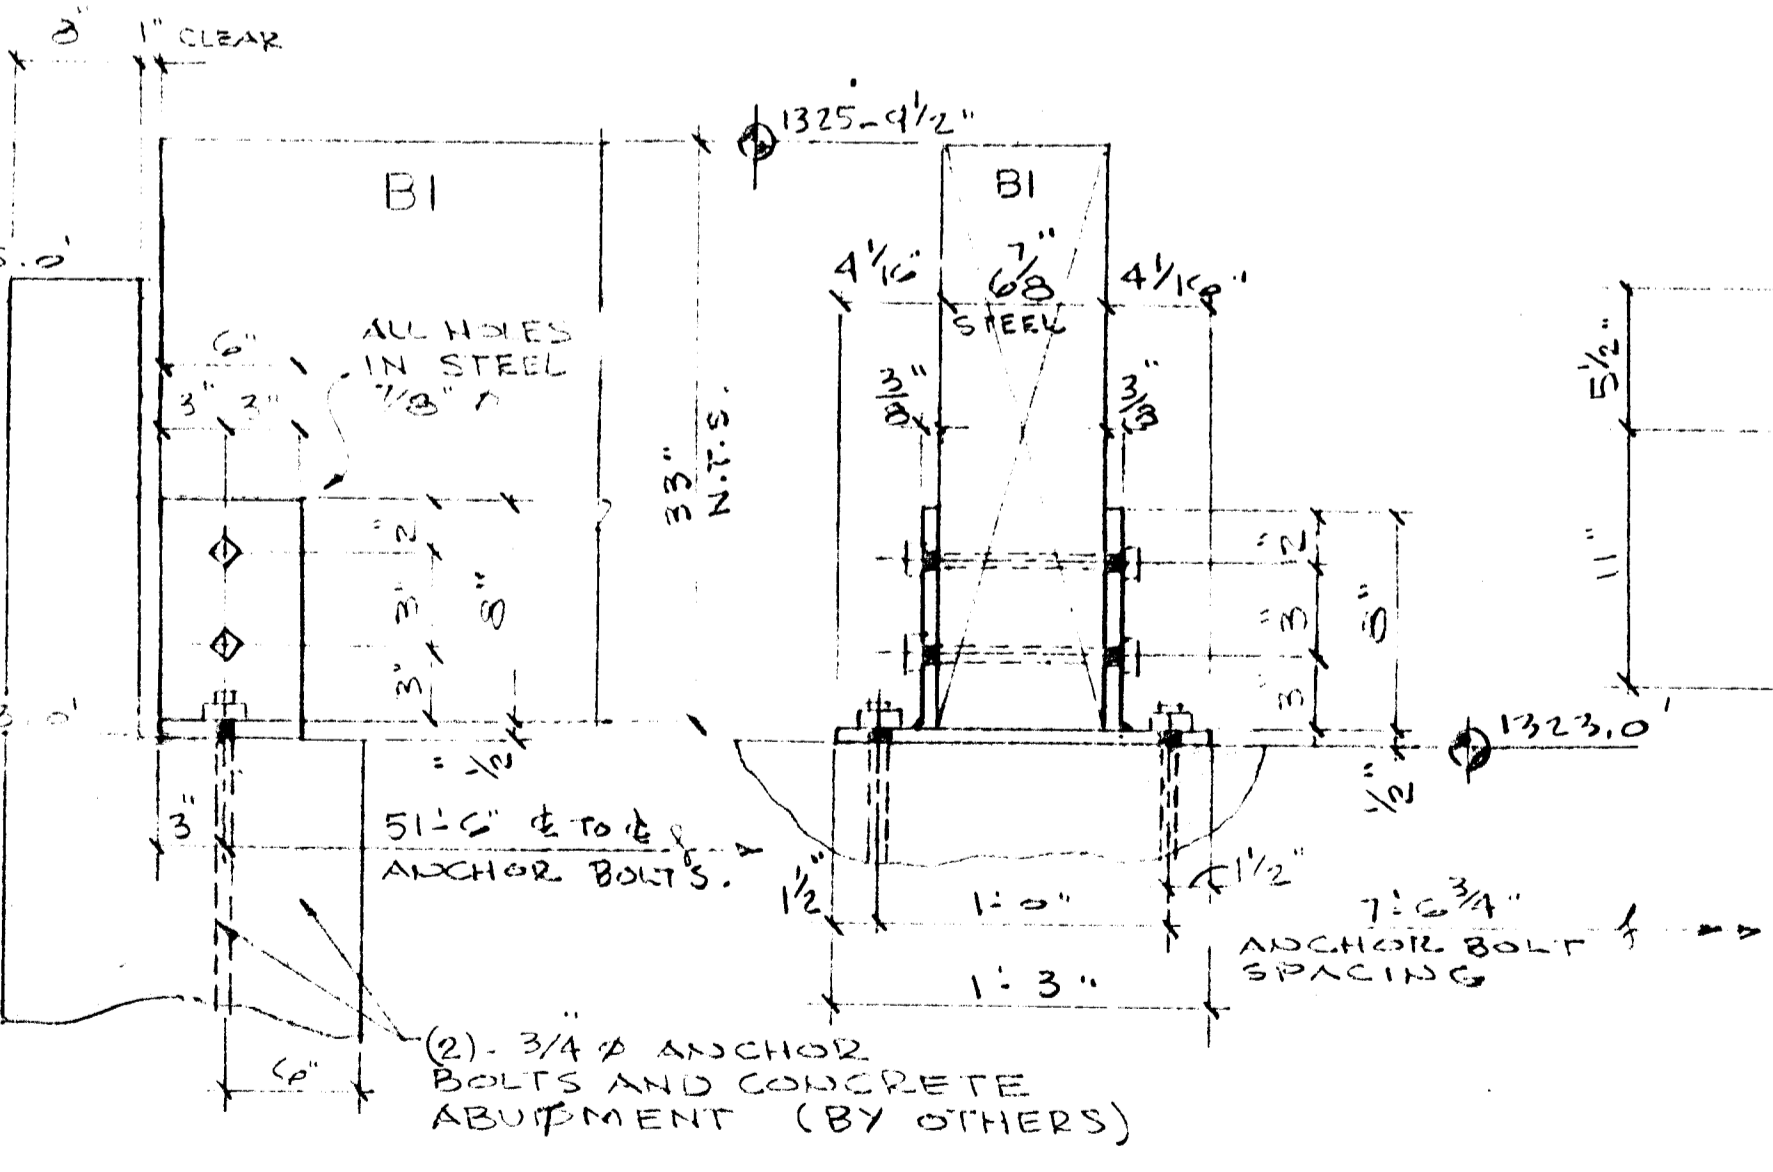 8" 1" CLEAR
1325-9 1/2"
B1
B1
4 1/16" 6 7/8" 4 1/16"
STEEL
ALL HOLES
IN STEEL
7/8" ø
6"
3" 3"
3/8" 3/8"
5 1/2"
33"
N.T.S.
2"
3"
3"
8"
1/2"
2"
3"
3"
8"
1/2"
11"
1323.0'
3"
51'-6" ℄ TO ℄
ANCHOR BOLTS.
1 1/2" 1'-0" 1 1/2"
7'-6 3/4"
ANCHOR BOLT
SPACING
1'-3"
6"
(2)-3/4" ø ANCHOR
BOLTS AND CONCRETE
ABUTMENT (BY OTHERS)